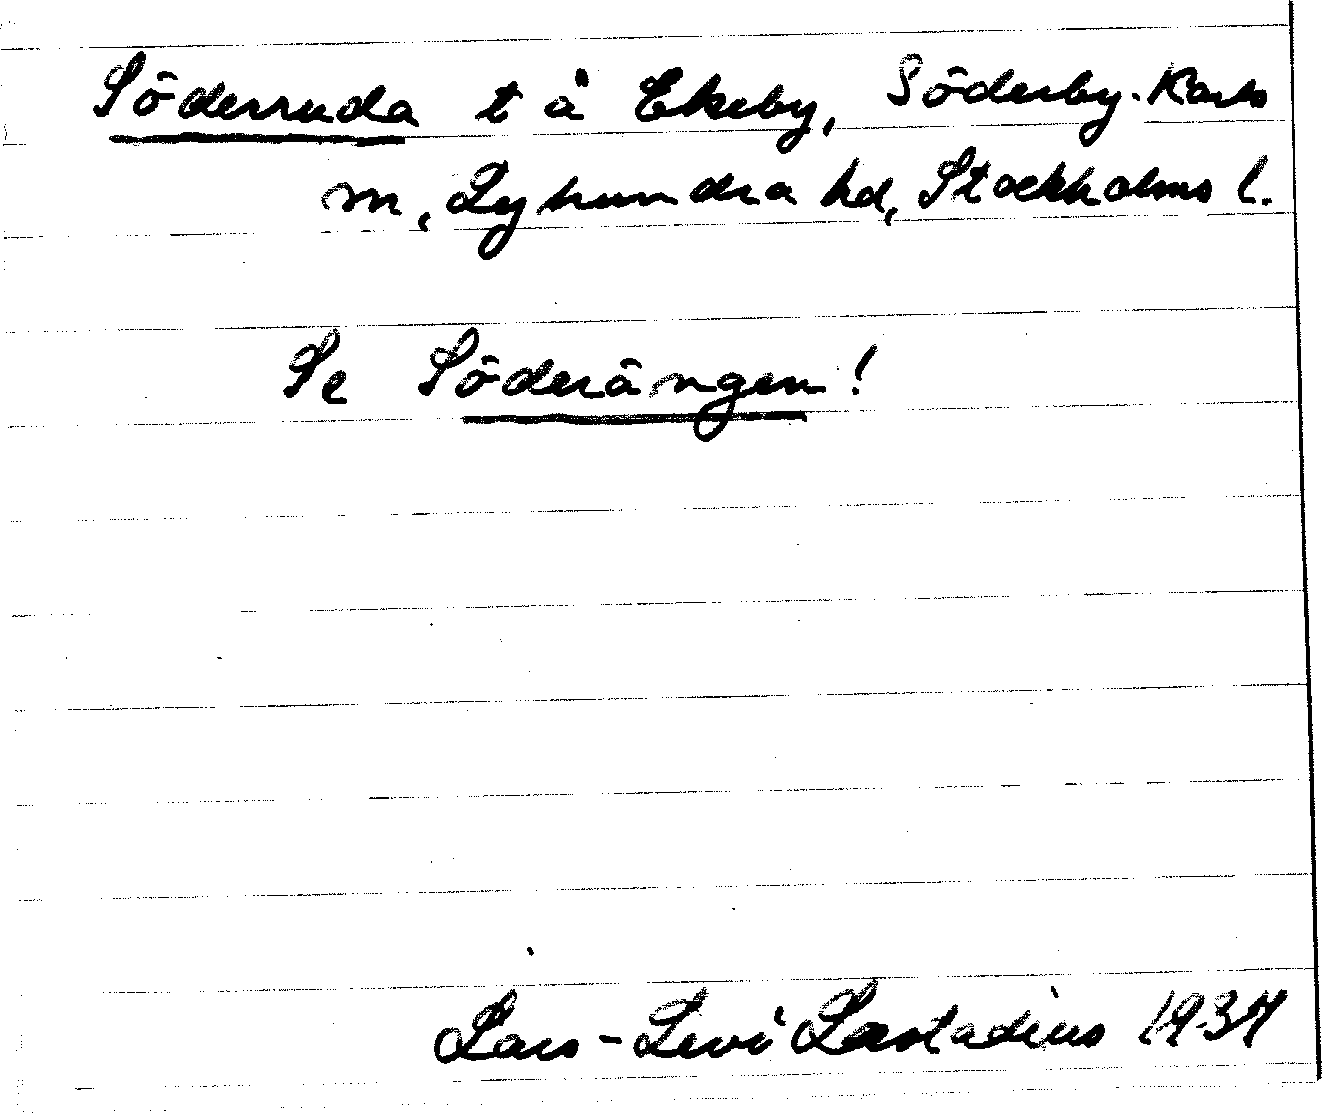 Söderruda t å Ekeby, Söderby-Karls
sn, Lyhundra hd, Stockholms l.
Se Söderängen!
Lars-Levi Læstadius 1937